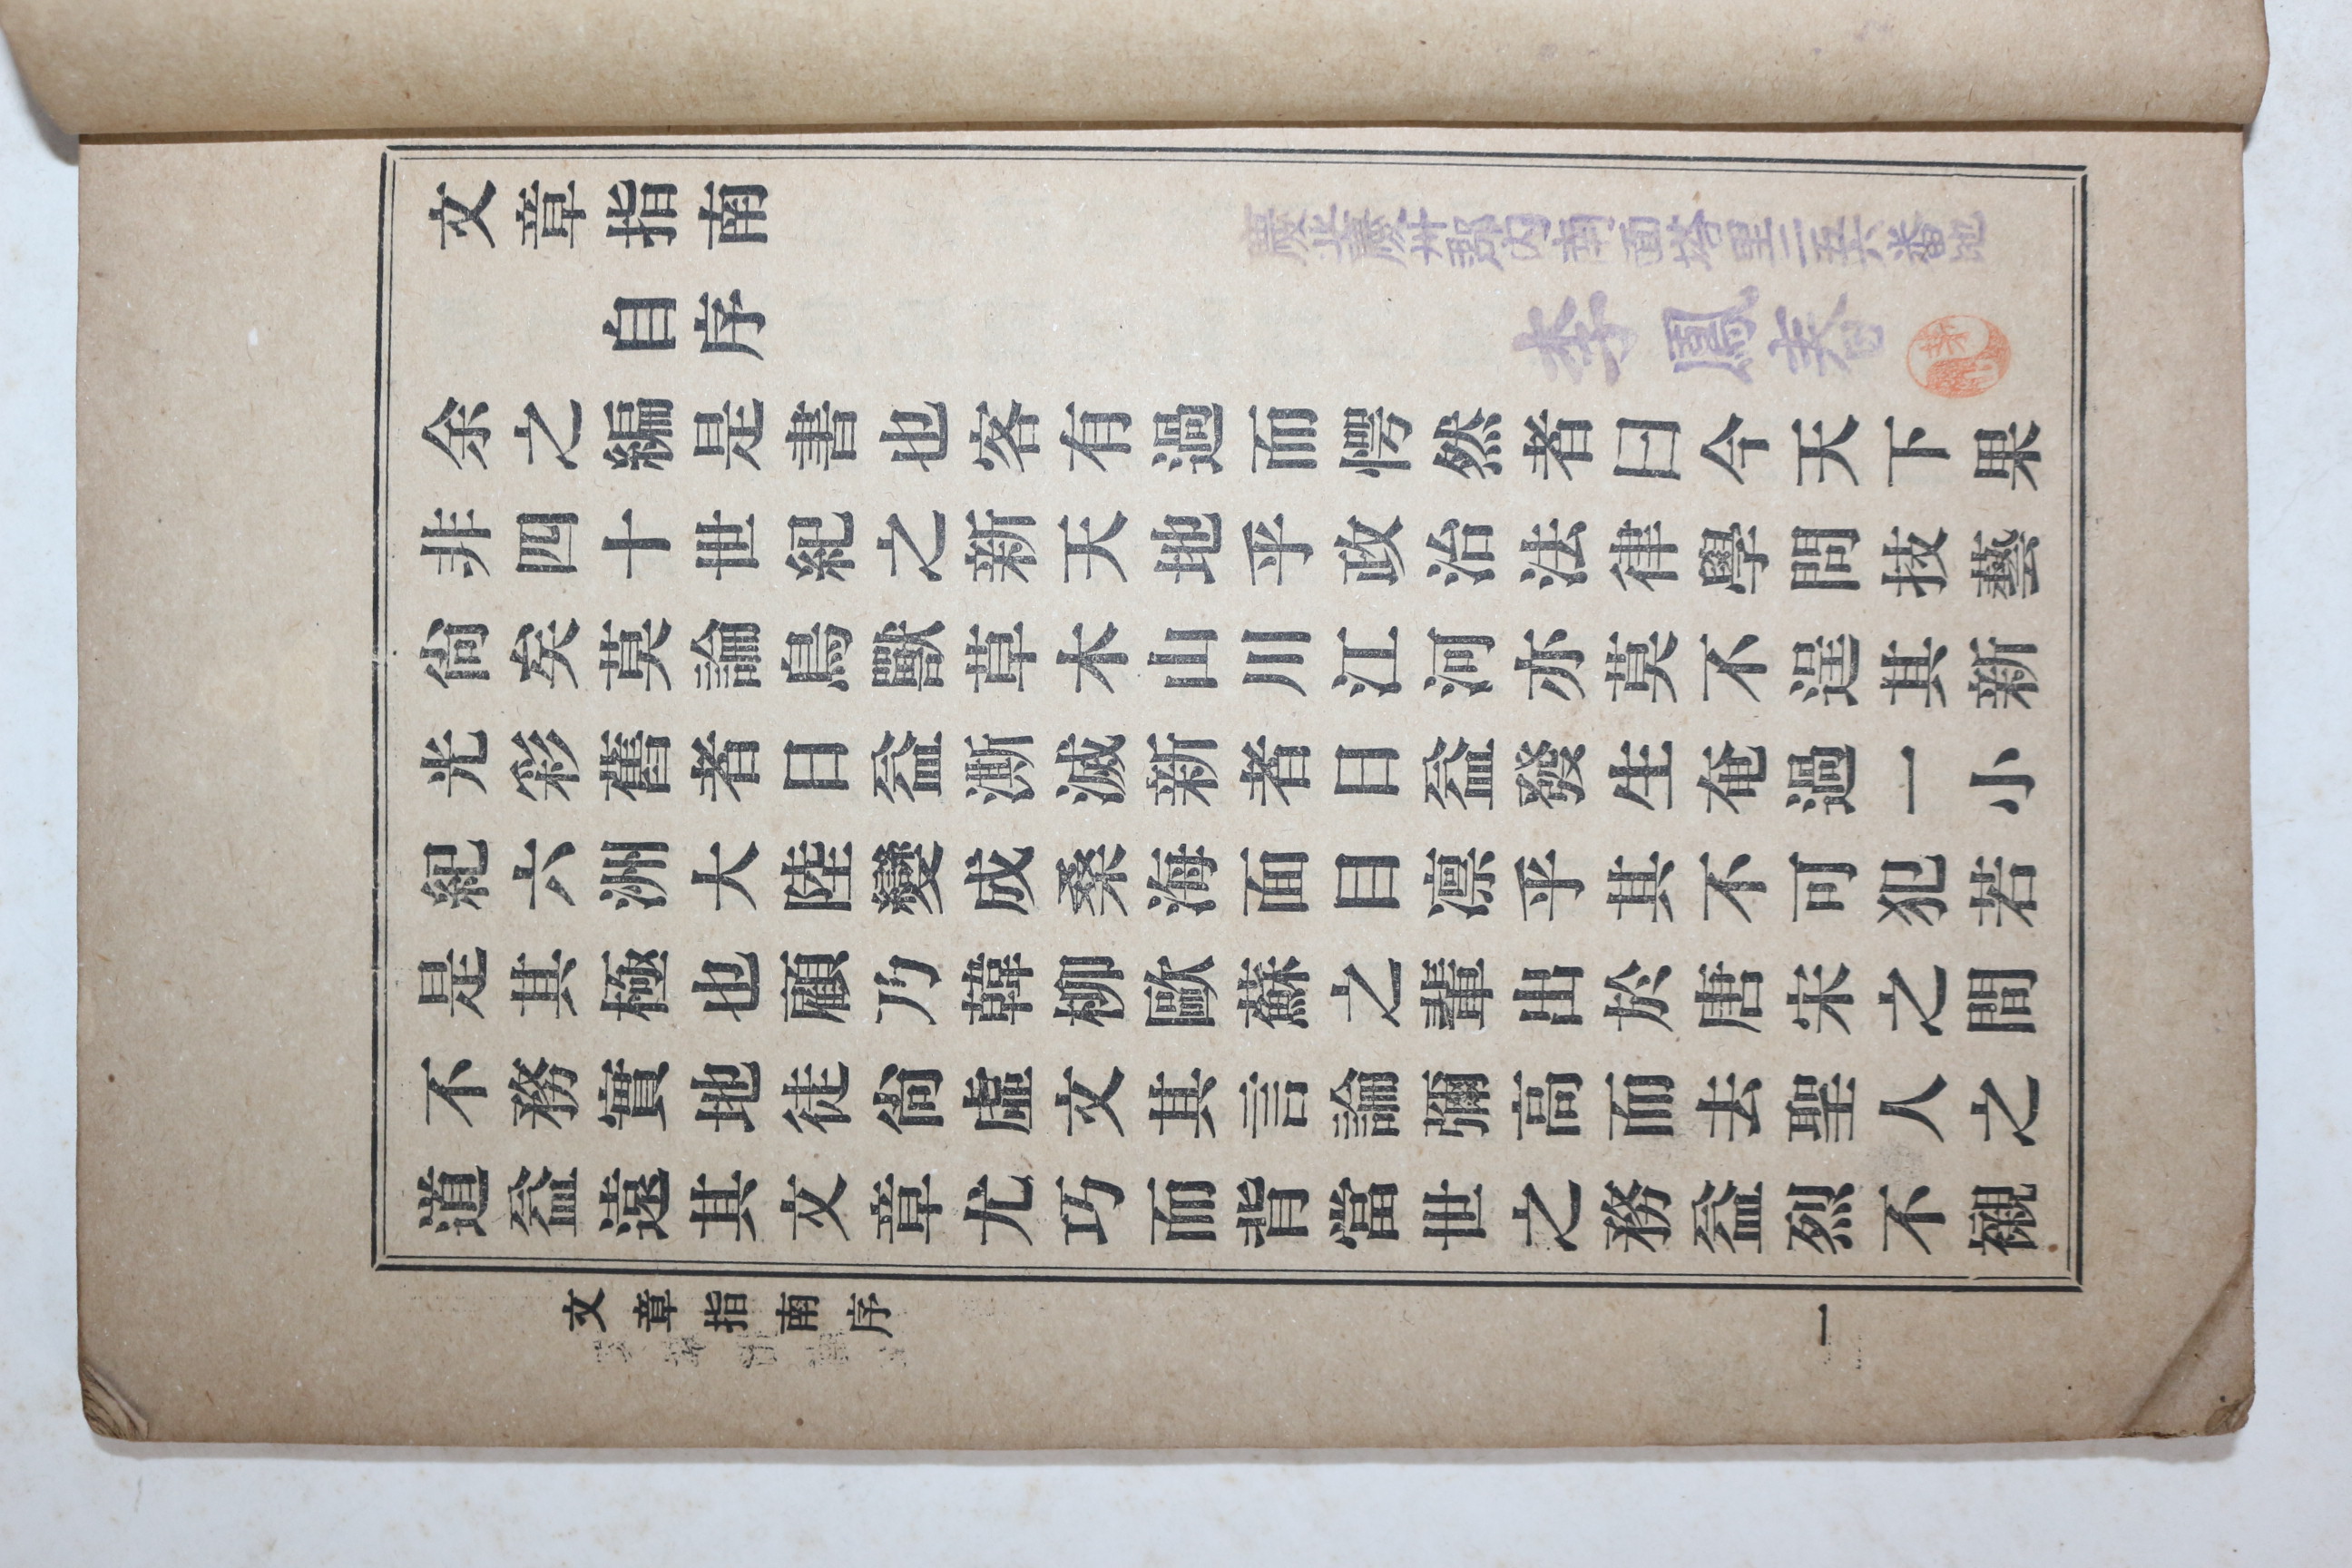 文章指南
慶北慶州郡內南面塔里二五六番地
自序
李鳳春
余之編是書也客有過而愕然者曰今天下果
非四十世紀之新天地乎政治法律學問技藝
尙矣莫論鳥獸草木山川江河亦莫不逞其新
光彩舊者日益澌滅新者日益發生奄過一小
紀六洲大陸變成桑海面目凛乎其不可犯若
是其極也顧乃韓柳歐蘇之輩出於唐宋之間
不務實地徒尙虛文其言論彌高而去聖人之
道益遠其文章尤巧而背當世之務益烈不襯
文章指南序
一